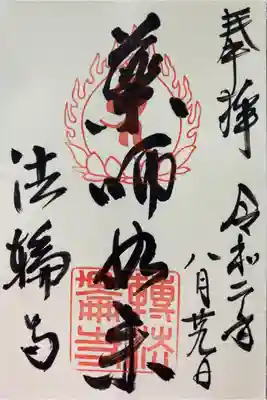 奉拝
令和二年
八月廿九日
薬師如来
法輪寺